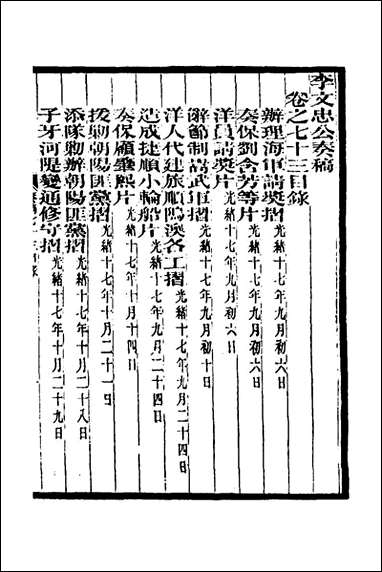 李文忠公奏稿
卷之七十三目錄
辦理海軍請獎摺光緒十七年九月初六日
奏保劉含芳等片光緒十七年九月初六日
洋員請獎片光緒十七年九月初六日
辭節制嵩武軍摺光緒十七年九月初十日
洋人代建旅順鴨澳各工摺光緒十七年九月二十四日
造成捷順小輪船片光緒十七年九月二十四日
奏保顧肇熙片光緒十七年十月十四日
援勦朝陽匪黨摺光緒十七年十月二十一日
添隊勦辦朝陽匪黨摺光緒十七年十月二十八日
子牙河隄變通修守摺光緒十七年十月二十九日